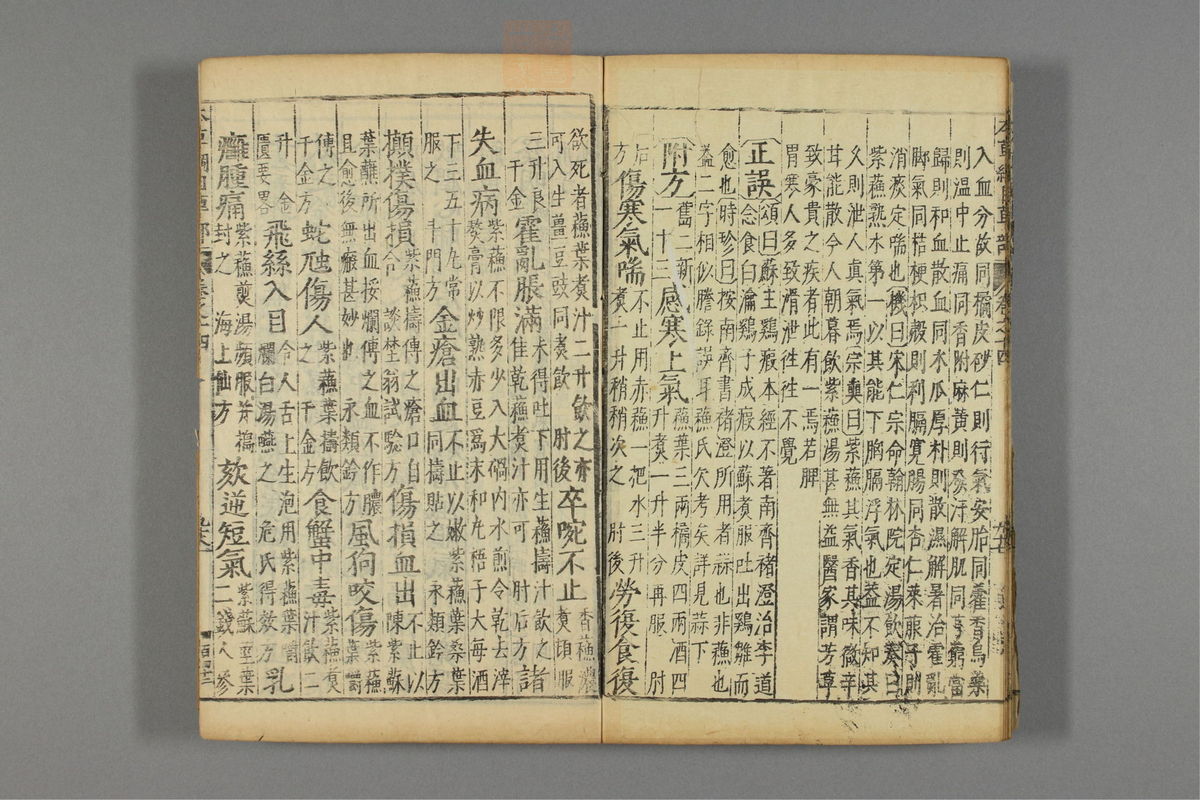 本草綱目草部 卷之十四
入血分故同橘皮砂仁則行氣安胎同藿香烏藥
則温中止痛同香附麻黃則發汗解肌同芎藭當
歸則和血散血同木瓜厚朴則散濕解暑治霍亂
脚氣同桔梗枳殼則利膈寬腸同杏仁萊菔子則
消痰定喘也機曰宋仁宗命翰林院定湯飲奏曰
紫蘓熟水第一以其能下胸膈浮氣也葢不知其
久則泄人真氣焉宗奭曰紫蘓其氣香其味微辛
甘能散今人朝暮飲紫蘓湯甚無益醫家謂芳草
致豪貴之疾者此有一焉若脾
胃寒人多致滑泄徃徃不覺
正誤頌曰蘇主鷄瘕本經不著南齊褚澄治李道
念食白瀹鷄子成瘕以蘇煮服吐出鷄雛而
愈也時珍曰按南齊書褚澄所用者蒜也非蘓也
蓋二字相似謄錄誤耳蘓氏欠考矣詳見蒜下
附方舊二新一十三感寒上氣蘓葉三兩橘皮四兩酒四升煮一升半分再服 肘
后方傷寒氣喘不止用赤蘓一把水三升煮一升稍稍次之 肘後勞復食復
欲死者蘓葉煮汁二升飲之亦可入生薑豆豉同煮飲 肘後卒啘不止香蘓濃煮頃服
三升良 千金霍亂脹滿未得吐下用生蘓擣汁飲之佳乾蘓煮汁亦可 肘后方諸
失血病紫蘓不限多少入大鍋内水煎令乾去滓熬膏以炒熟赤豆爲末和丸梧子大每酒
下三五十丸常服之 斗門方金瘡出血不止以嫩紫蘓葉桑葉同擣貼之 永類鈐方
攧撲傷損紫蘓擣傅之瘡口自合 談埜翁試驗方傷損血出不止以陳紫蘇
葉蘸所出血挼爛傅之血不作膿且愈後無瘢甚妙也 永類鈐方風狗咬傷紫蘓葉嚼
傅之 千金方蛇虺傷人紫蘓葉擣飲之 千金方食蟹中毒紫蘓煮汁飲二
升 金匱要畧飛絲入目令人舌上生泡用紫蘓葉嚼爛白湯嚥之 危氏得效方乳
癰腫痛紫蘓煎湯頻服并擣封之 海上仙方欬逆短氣紫蘇莖葉二錢人參
本草綱目草部 卷之十四